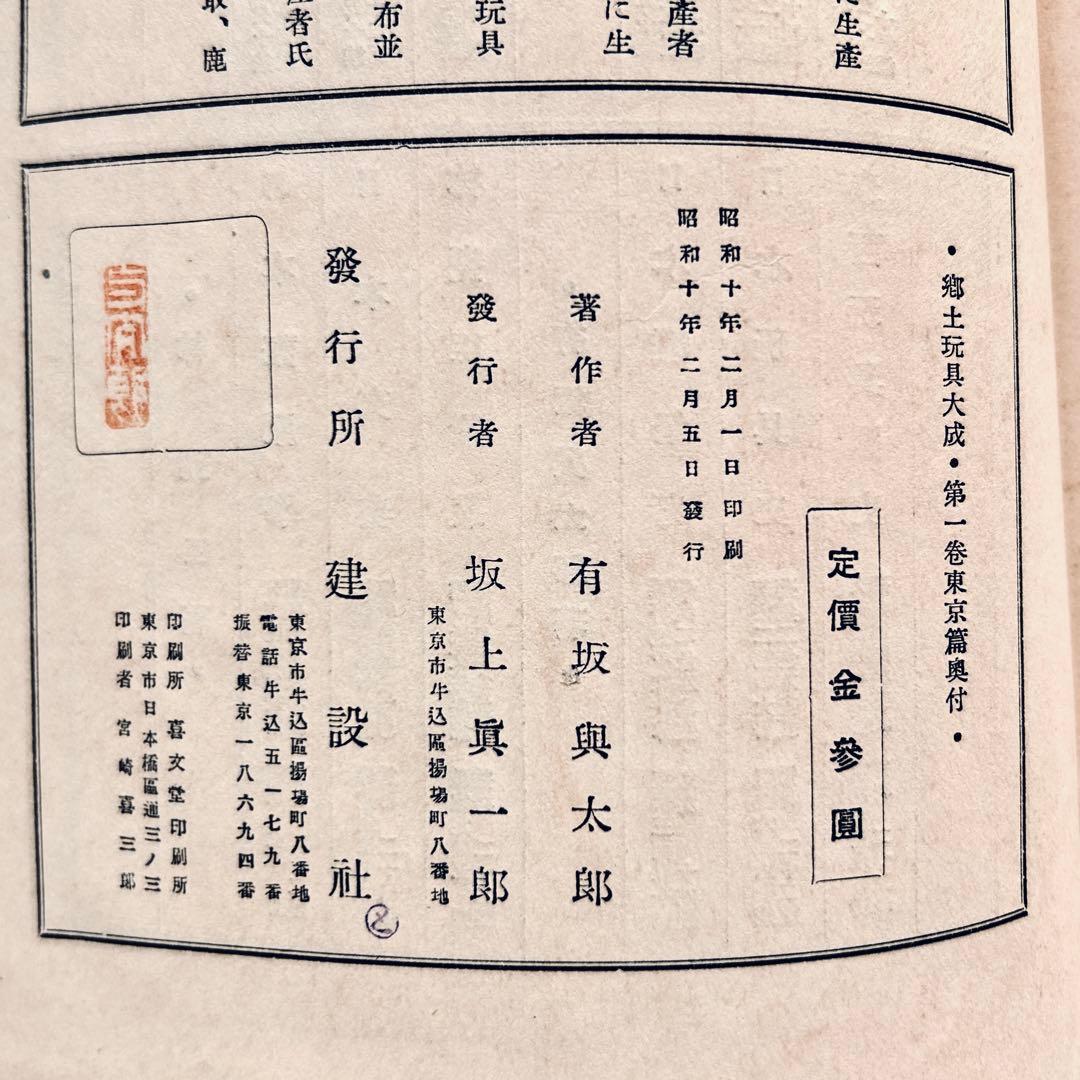 に生産
産者
に生
玩具
布並
産者氏
鹿
•鄕土玩具大成•第一卷東京篇奧付•
定價金參圓
昭和十年二月一日印刷
昭和十年二月五日發行
著作者 有坂與太郎
發行者 坂上眞一郎
東京市牛込區揚場町八番地
發行所 建設社
東京市牛込區揚場町八番地
電話牛込五一七九番
振替東京一八六九四番
印刷所 喜文堂印刷所
東京市日本橋區通三ノ三
印刷者 宮崎喜三郎